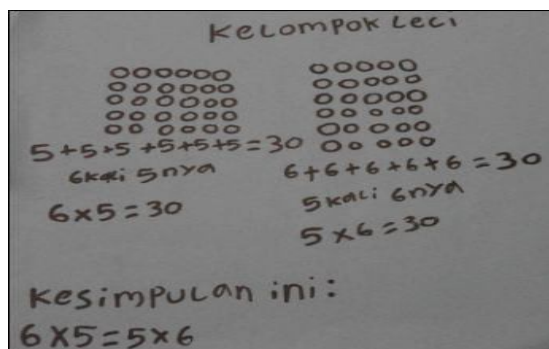 Kelompok Leci
5+5+5+5+5+5=30
6 kali 5nya
6x5=30
6+6+6+6+6=30
5 kali 6nya
5x6=30
Kesimpulan ini:
6x5=5x6